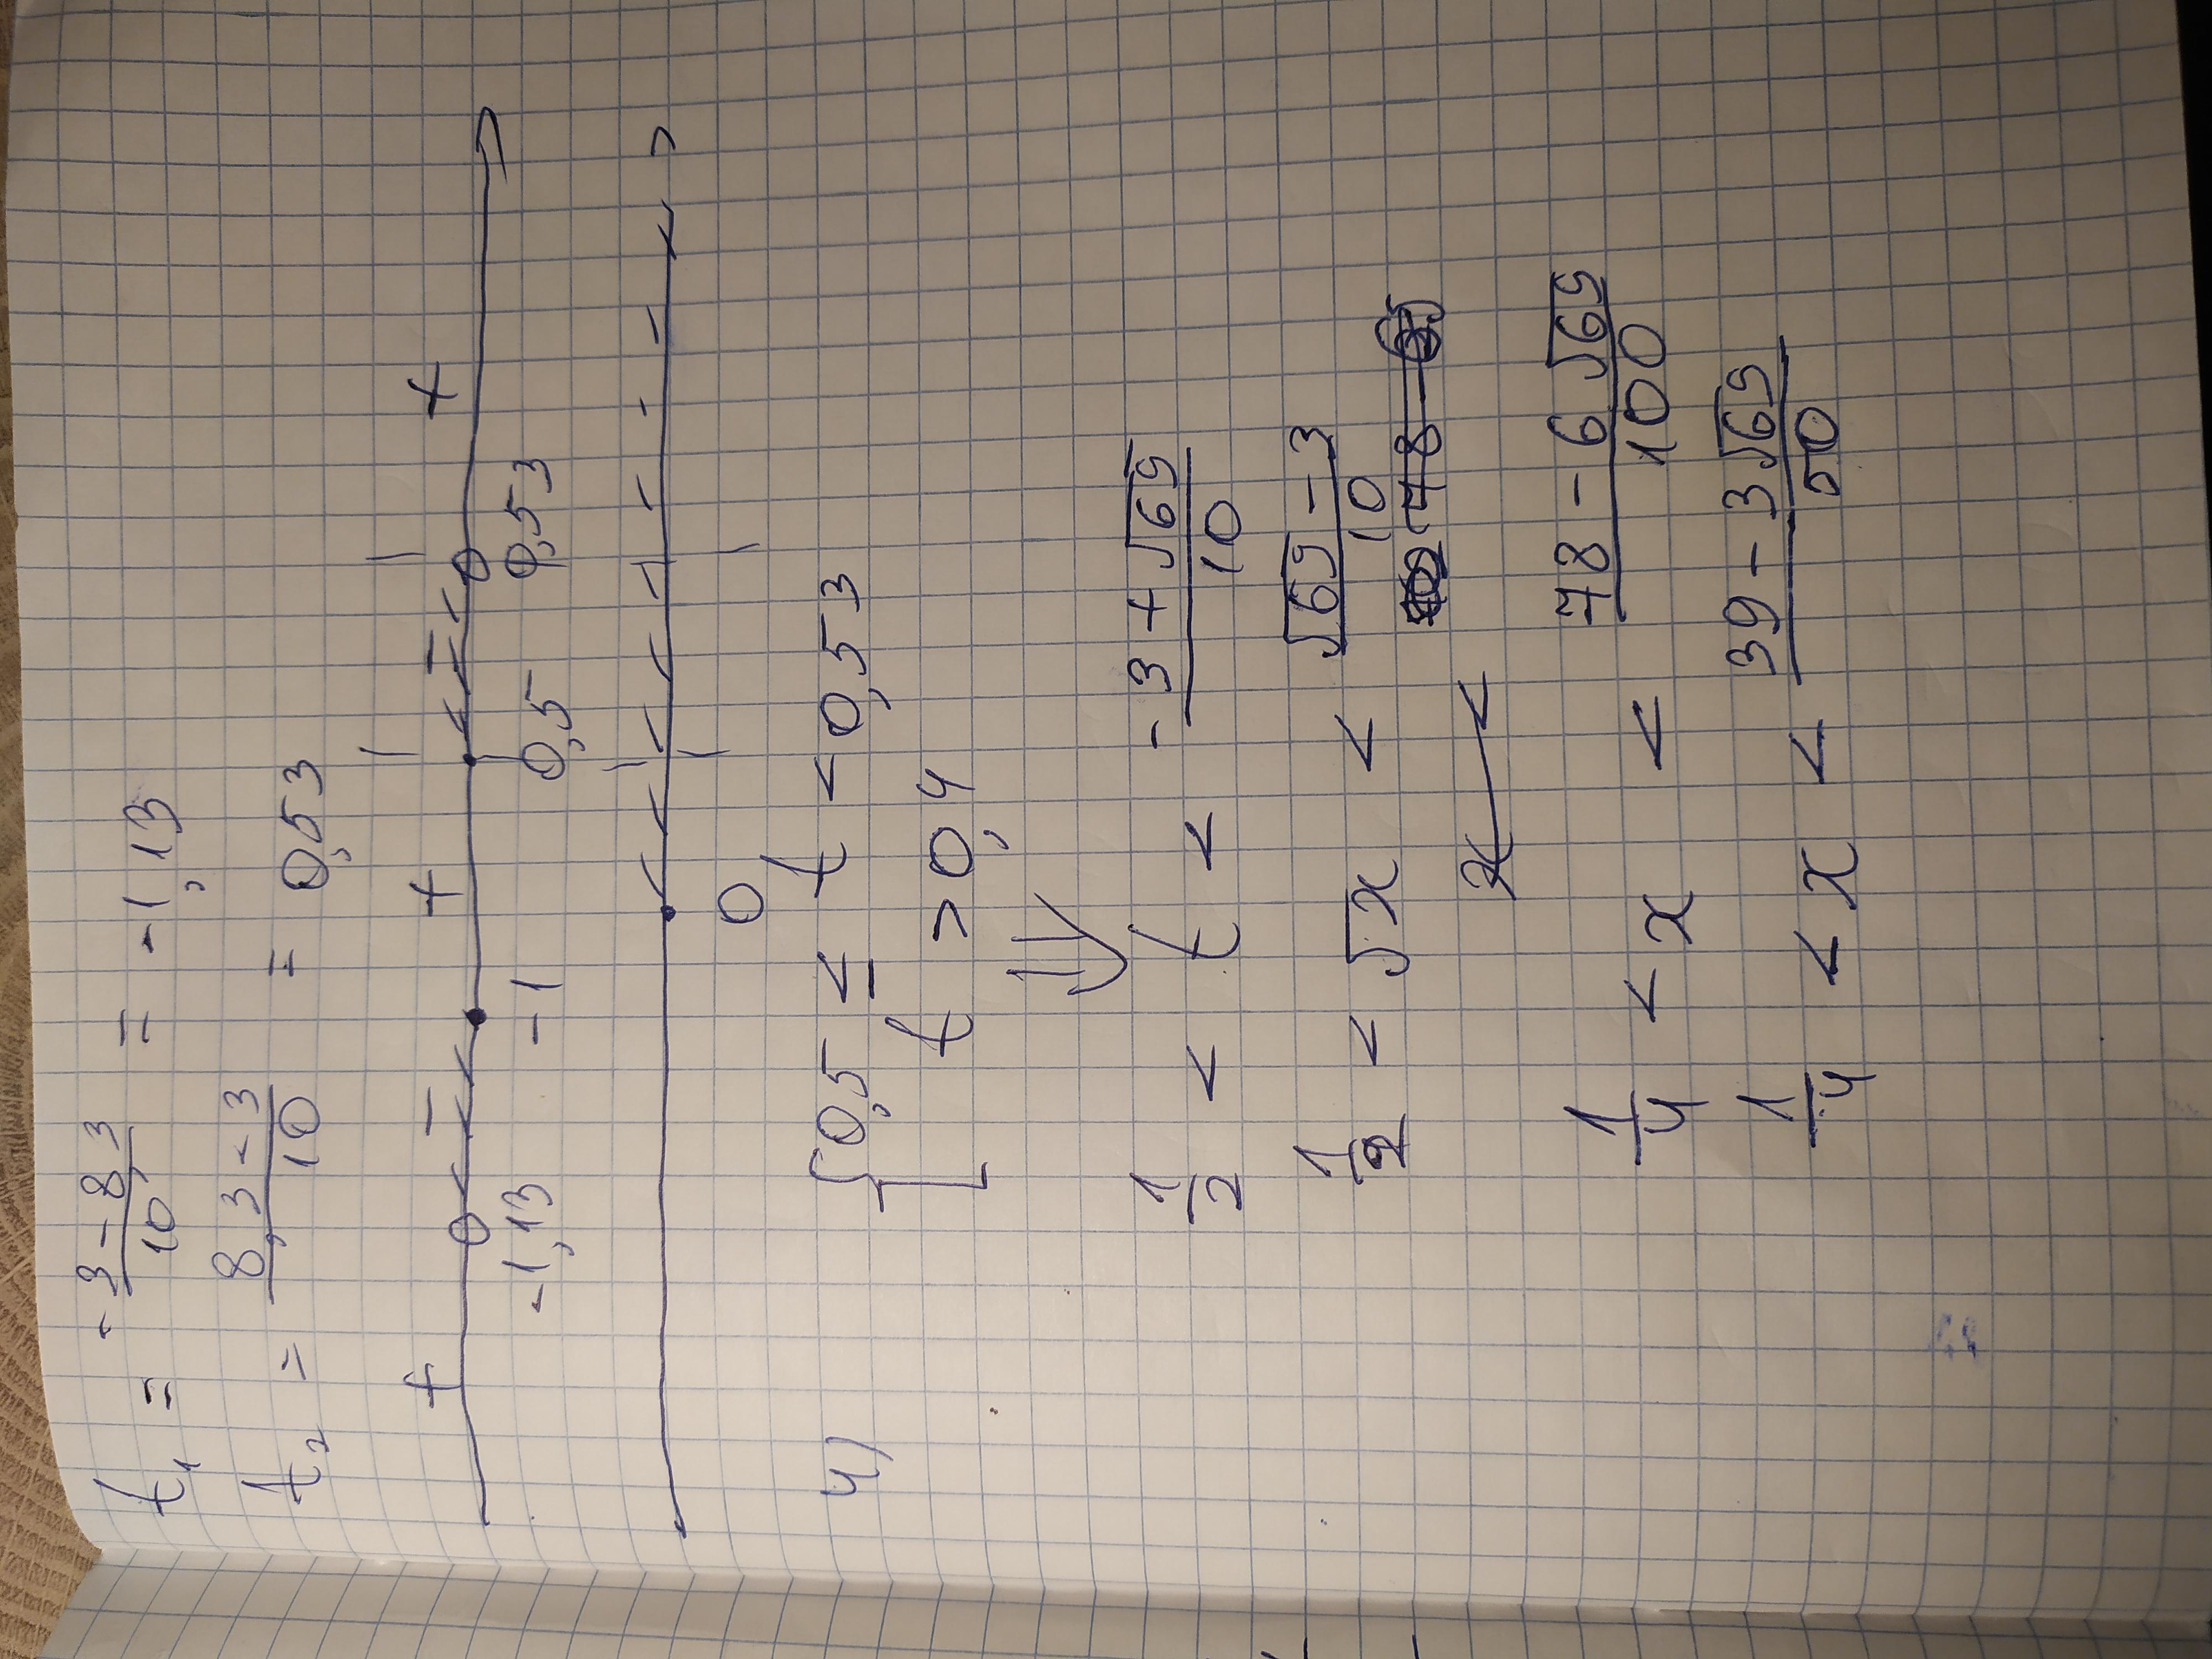 t₁ = -3-8,3/10 = -1,13
t₂ = 8,3-3/10 = 0,53
+ - + - +
-1,13 -1 0,5 0,53
0
4) { 0,5 ≤ t < 0,53
t > 0,4
⇓
1/2 < t < -3+√69/10
1/2 < √x < √69-3/10
x < 78-
1/4 < x < 78-6√69/100
1/4 < x < 39-3√69/50